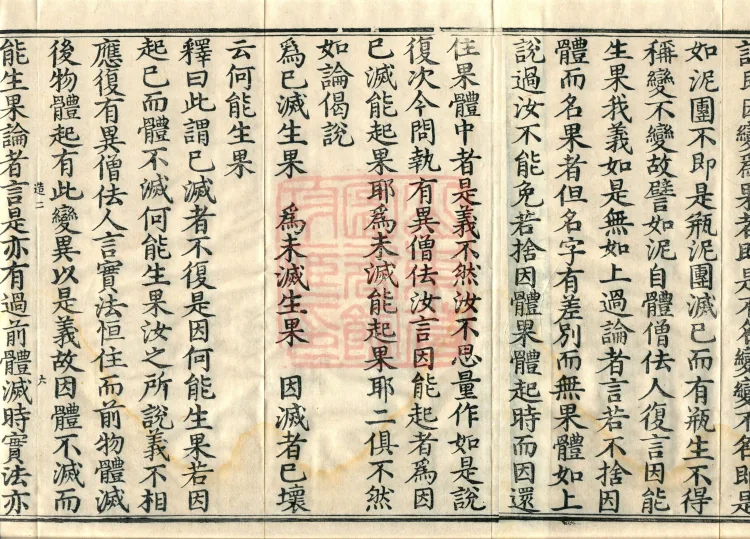 因變爲果者即是不名變變不名即是
如泥團不即是瓶泥團滅已而有瓶生不得
稱變不變故譬如泥自體僧佉人復言因能
生果我義如是無如上過論者言若不捨因
體而名果者但名字有差別而無果體如上
說過汝不能免若捨因體果體起時而因還
住果體中者是義不然汝不思量作如是說
復次今問執有異僧佉汝言因能起者爲因
已滅能起果耶爲未滅能起果耶二俱不然
如論偈說
爲已滅生果　爲未滅生果　因滅者已壞
云何能生果
釋曰此謂已滅者不復是因何能生果若因
起已而體不滅何能生果汝之所說義不相
應復有異僧佉人言實法恒住而前物體滅
後物體起有此變異以是義故因體不滅而
造二　六
能生果論者言是亦有過前體滅時實法亦